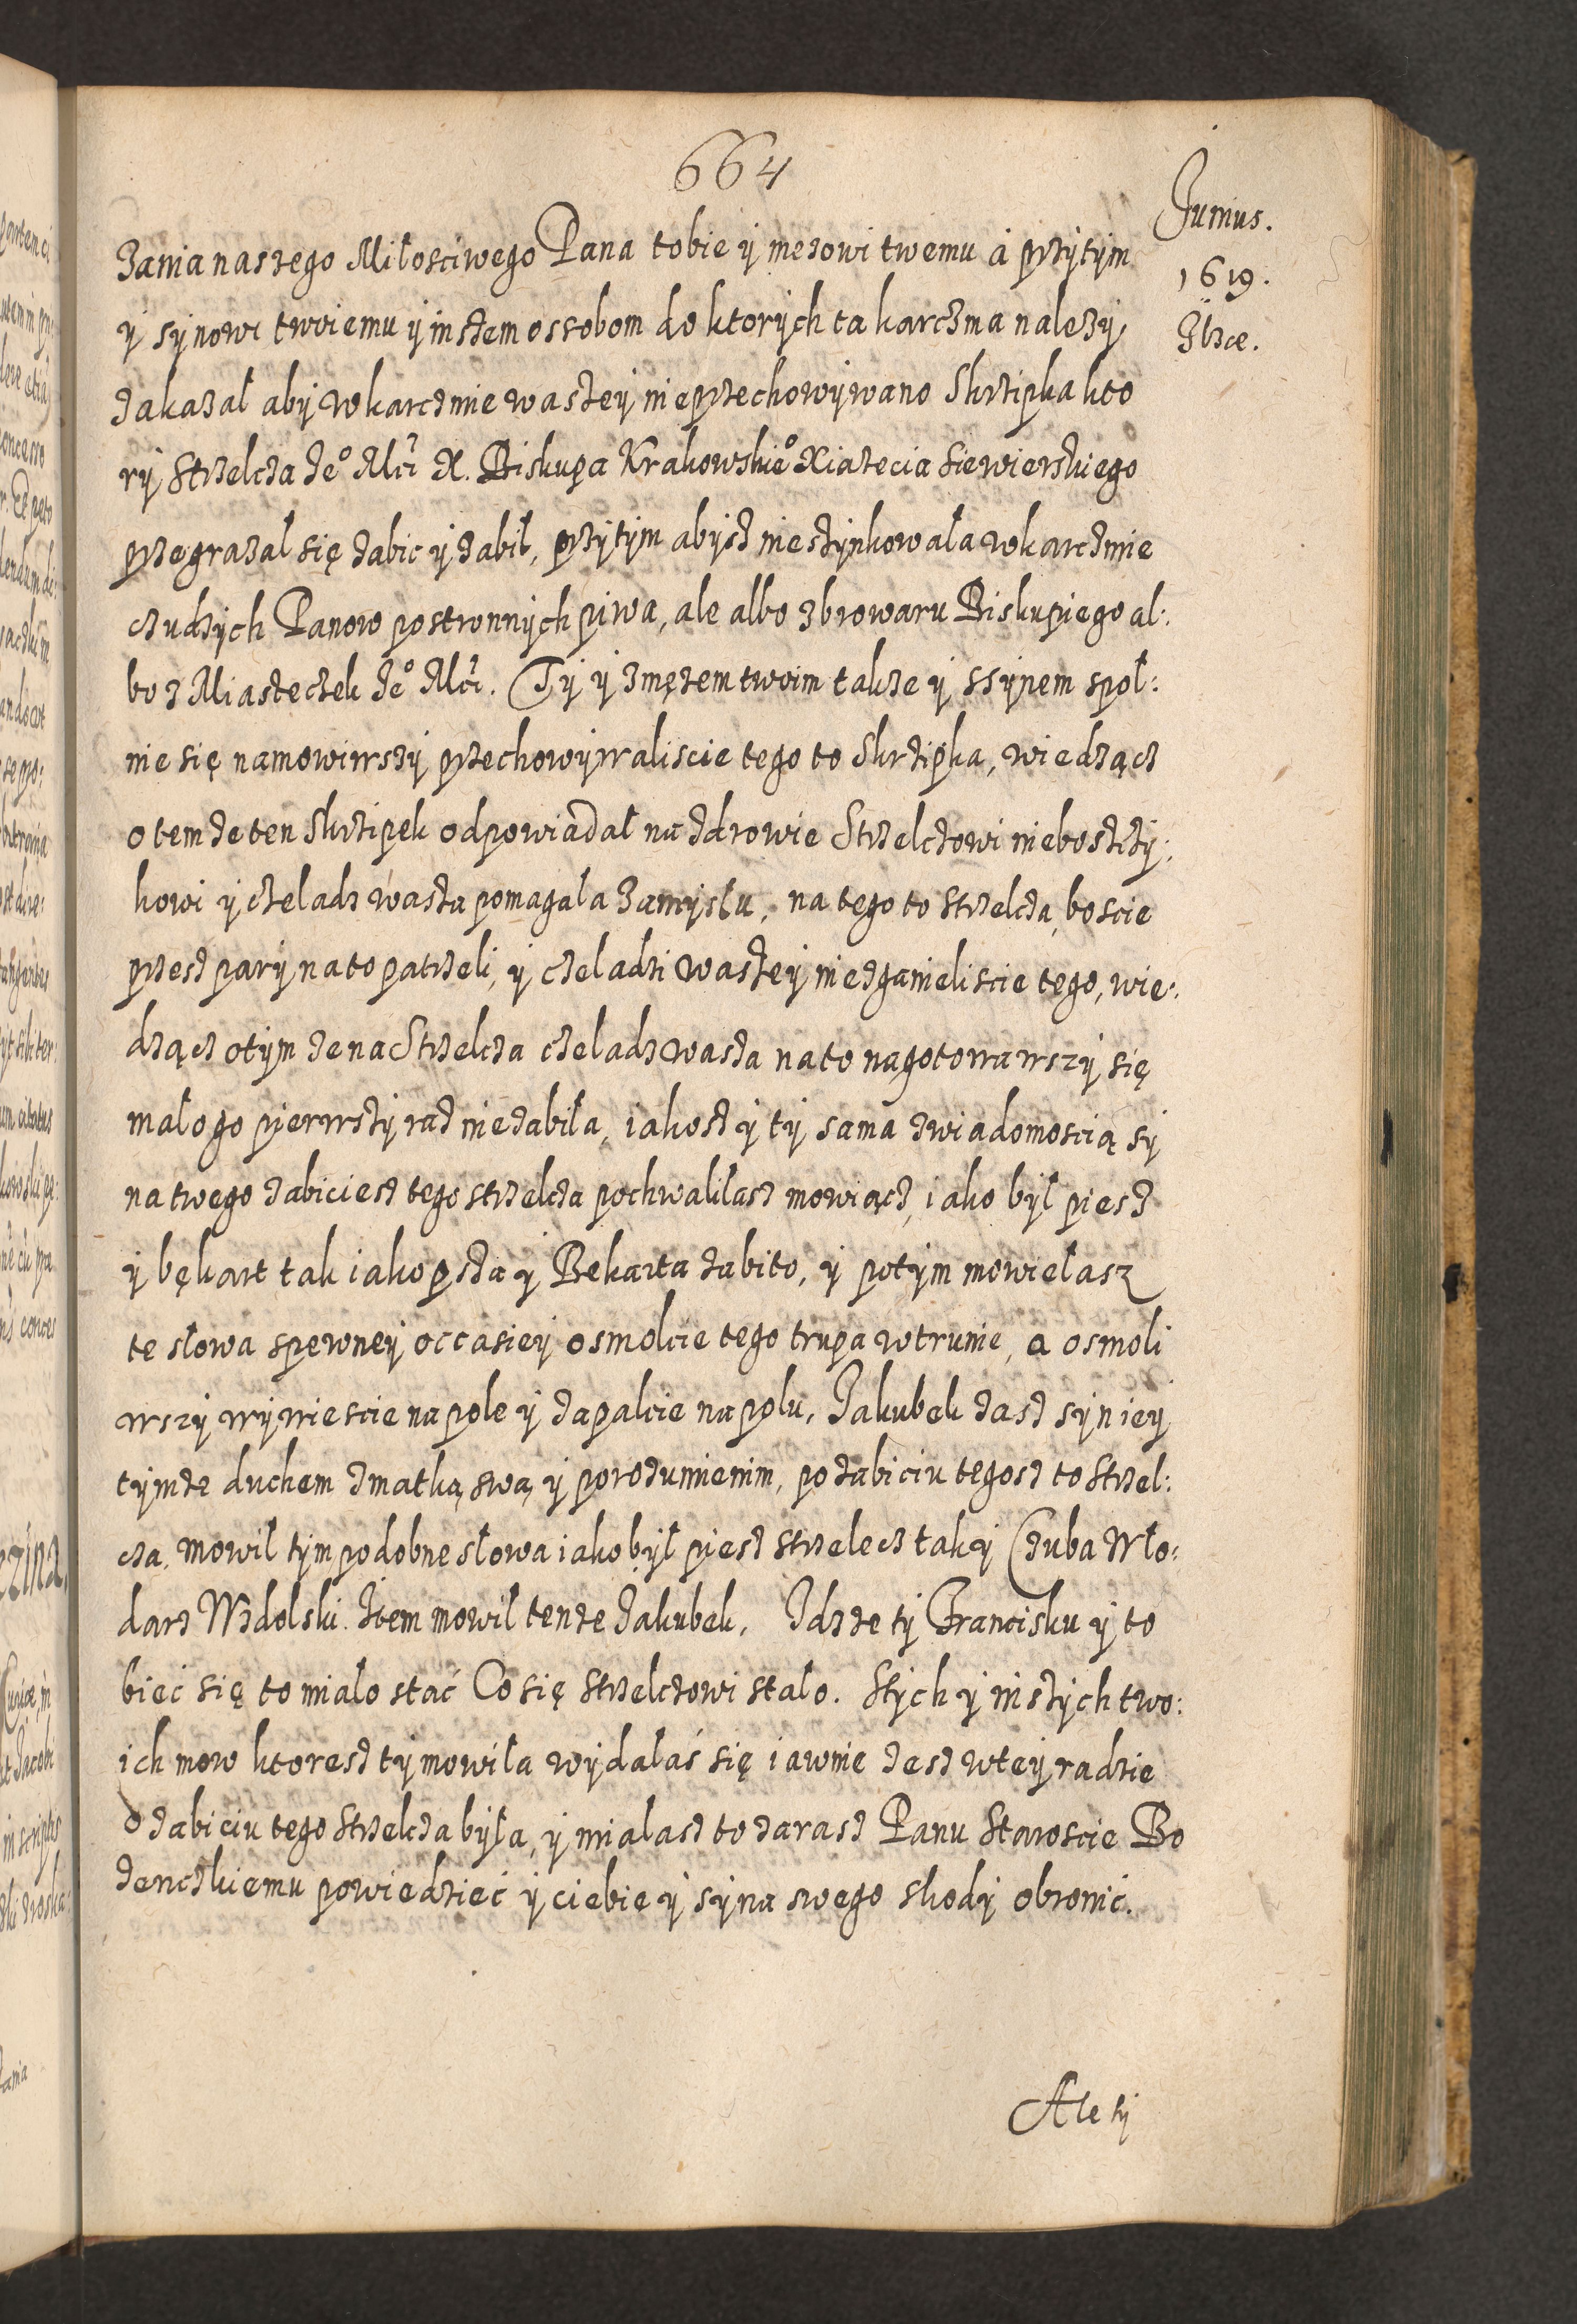 664
Junius.
1619.
Ilzæ.
zania naszego Miłosciwego Pana tobie y mezowi twemu a przytym
y synowi twoiemu y inszem ossobom do ktorych ta karczma nalezy,
zakazał aby w karczmie waszey nie przechowywano Skrzipka kto
ry Strzelcza Je° Mći X. Biskupa Krakowskie° Xiazecia Siewierskiego
przegrazał się zabic y zabił, przytym abysz nie szynkowała w karczmie
czudzych Panow postronnych piwa, ale albo z browaru Biskupiego al:
bo z Miasteczek Je° Mći. Ty y z męzem twoim takze y s synem spol:
nie się namowiwszy przechowywaliscie tego to Skrzipka, wiedzącz
o tem ze ten Skrzipek odpowiadał na zdrowie Strzelczowi nieboszczy:
kowi y czeladz wasza pomagała zamysłu, na tego to Strzelcza, boscie
przesz pary na to patrzeli, y czeladzi waszey nie zganieliscie tego, wie:
dzącz o tym ze na Strzelcza czeladz wasza na to nagotowawszy się
mało go pierwszy raz nie zabiła, iakosz y ty sama z wiadomoscią sy
na twego zabiciesz tego strzelcza pochwaliłasz mowiącz, iako był piesz
y bękart tak iako psza y Bekarta zabito, y potym mowiełasz
te słowa s pewney occasiey osmolcie tego trupa w trunie, a osmoli
wszy wywiescie na pole y zapalcie na polu, Jakubek zasz syn iey
tymze duchem z matką swą y porozumienim, po zabiciu tegosz to Strzel:
cza, mowił tym podobne słowa iako był piesz strzelecz tak y Czuba Wło:
darz Wzdolski. Item mowił tenze Jakubek, Idz ze ty Francisku y to
bieć się to miało stać Co się Strzelczowi stało. S tych y inszych two:
ich mow ktoresz ty mowiła wydałaś się iawnie zesz w tey radzie
o zabiciu tego Strzelcza była, y miałasz to zarasz Panu Staroscie Bo
zenczkiemu powiedzieć y ciebie y syna swego skody obronić.
Ale ty